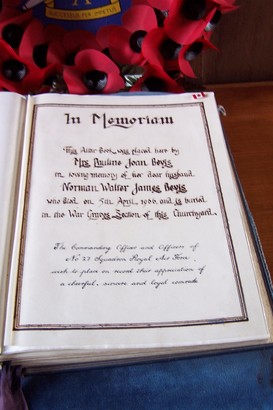 In Memoriam
This Altar Book was placed here by
Mrs Pauline Joan Boys
in loving memory of her dear husband.
Norman Walter James Boys
who died on 5th April, and is buried
in the War Graves Section of this Churchyard.
The Commanding Officer and Officers of
No 27 Squadron Royal Air Force
wish to place on record their appreciation of
a cheerful, sincere and loyal comrade